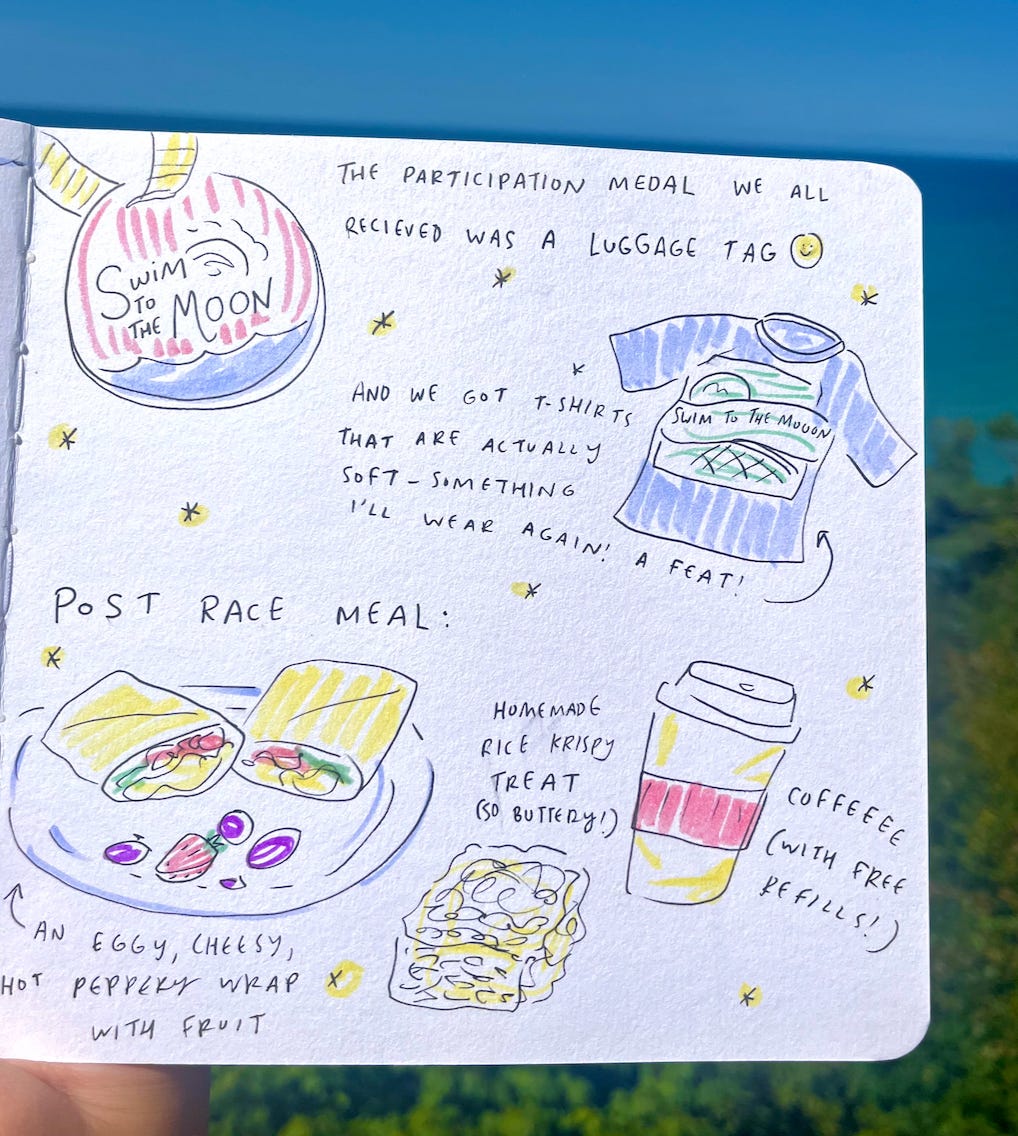 SWIM
TO
THE MOON
THE PARTICIPATION MEDAL WE ALL
RECIEVED WAS A LUGGAGE TAG
AND WE GOT T-SHIRTS
THAT ARE ACTUALLY
SOFT - SOMETHING
I'LL WEAR AGAIN! A FEAT!
SWIM TO THE MOUON
POST RACE MEAL:
AN EGGY, CHEESY,
HOT PEPPERY WRAP
WITH FRUIT
HOMEMADE
RICE KRISPY
TREAT
(SO BUTTERY!)
COFFEEEE
(WITH FREE
REFILLS!)